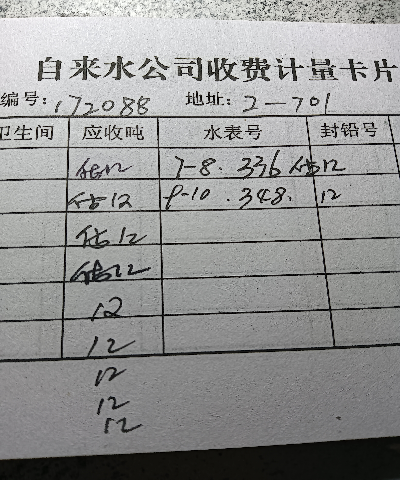 自来水公司收费计量卡片
编号: 172088 地址: 2-701
卫生间 应收吨 水表号 封铅号
估12 7-8. 336 估12
估12 9-10. 348. 12
估12
估12
12
12
12
12
12